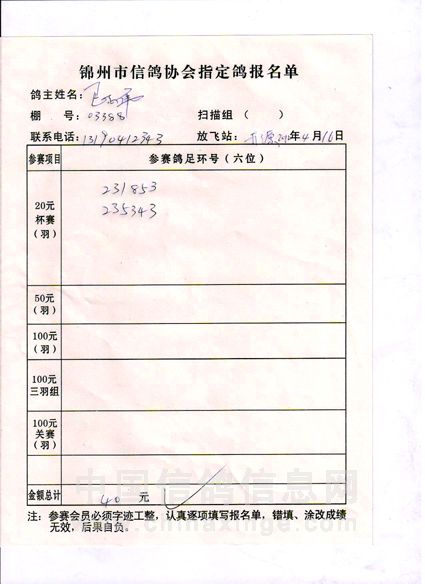 锦州市信鸽协会指定鸽报名单
鸽主姓名：
棚 号：03588 扫描组（ ）
联系电话：13190412343 放飞站：开源 年4月16日
参赛项目 参赛鸽足环号（六位）
20元
杯赛
（羽）
231853
235343
50元
（羽）
100元
（羽）
100元
三羽组
100元
关赛
（羽）
金额总计 40 元
注：参赛会员必须字迹工整，认真逐项填写报名单，错填、涂改成绩
无效，后果自负。
中国信鸽信息网
www.chinaxinge.com